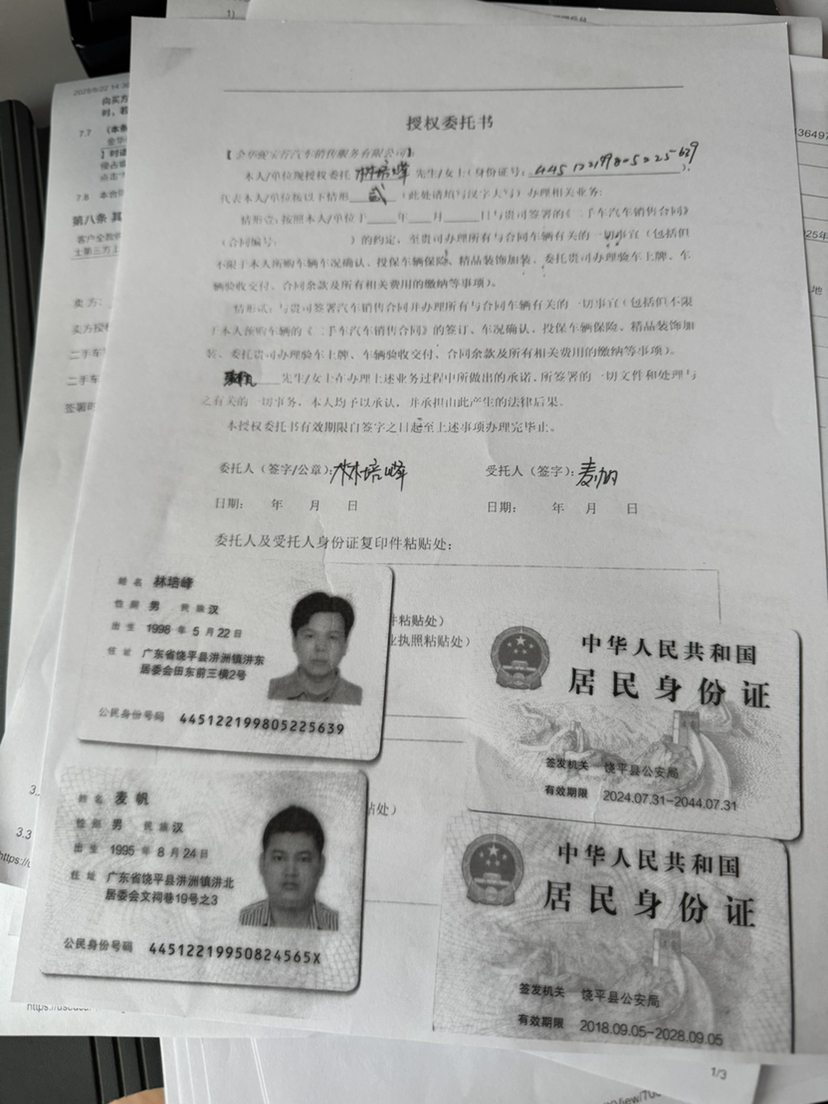 授权委托书
本人/单位现授权委托 林培峰 先生/女士(身份证号: 445122199805225639 ),
代表本人/单位按以下情形 贰 (此处请填写汉字大写)办理相关业务:
情形壹:按照本人/单位于 年 月 日与贵司签署的《二手车汽车销售合同》
(合同编号: )的约定,至贵司办理所有与合同车辆有关的一切事宜(包括但
不限于本人所购车辆车况确认、投保车辆保险、精品装饰加装、委托贵司办理验车上牌、车
辆验收交付、合同余款及所有相关费用的缴纳等事项)。
情形贰:与贵司签署汽车销售合同并办理所有与合同车辆有关的一切事宜(包括但不限
于本人预购车辆的《二手车汽车销售合同》的签订、车况确认、投保车辆保险、精品装饰加
装、委托贵司办理验车上牌、车辆验收交付、合同余款及所有相关费用的缴纳等事项)。
先生/女士在办理上述业务过程中所做出的承诺、所签署的一切文件和处理与
之有关的一切事务,本人均予以承认,并承担由此产生的法律后果。
本授权委托书有效期限自签字之日起至上述事项办理完毕止。
委托人(签字/公章): 林培峰 受托人(签字): 麦帆
日期: 年 月 日 日期: 年 月 日
委托人及受托人身份证复印件粘贴处:
件粘贴处)
业执照粘贴处)
姓名 林培峰
性别 男 民族 汉
出生 1998 年 5 月 22 日
住址 广东省饶平县洴洲镇洴东
居委会田东前三横2号
公民身份号码 445122199805225639
中华人民共和国
居民身份证
签发机关 饶平县公安局
有效期限 2024.07.31-2044.07.31
粘处)
姓名 麦帆
性别 男 民族 汉
出生 1995 年 8 月 24 日
住址 广东省饶平县洴洲镇洴北
居委会文祠巷19号之3
公民身份号码 44512219950824565X
中华人民共和国
居民身份证
签发机关 饶平县公安局
有效期限 2018.09.05-2028.09.05
7.7
7.8
第八条 其
卖方:
卖方授权
二手车
二手车
签署时
3.3
1/3